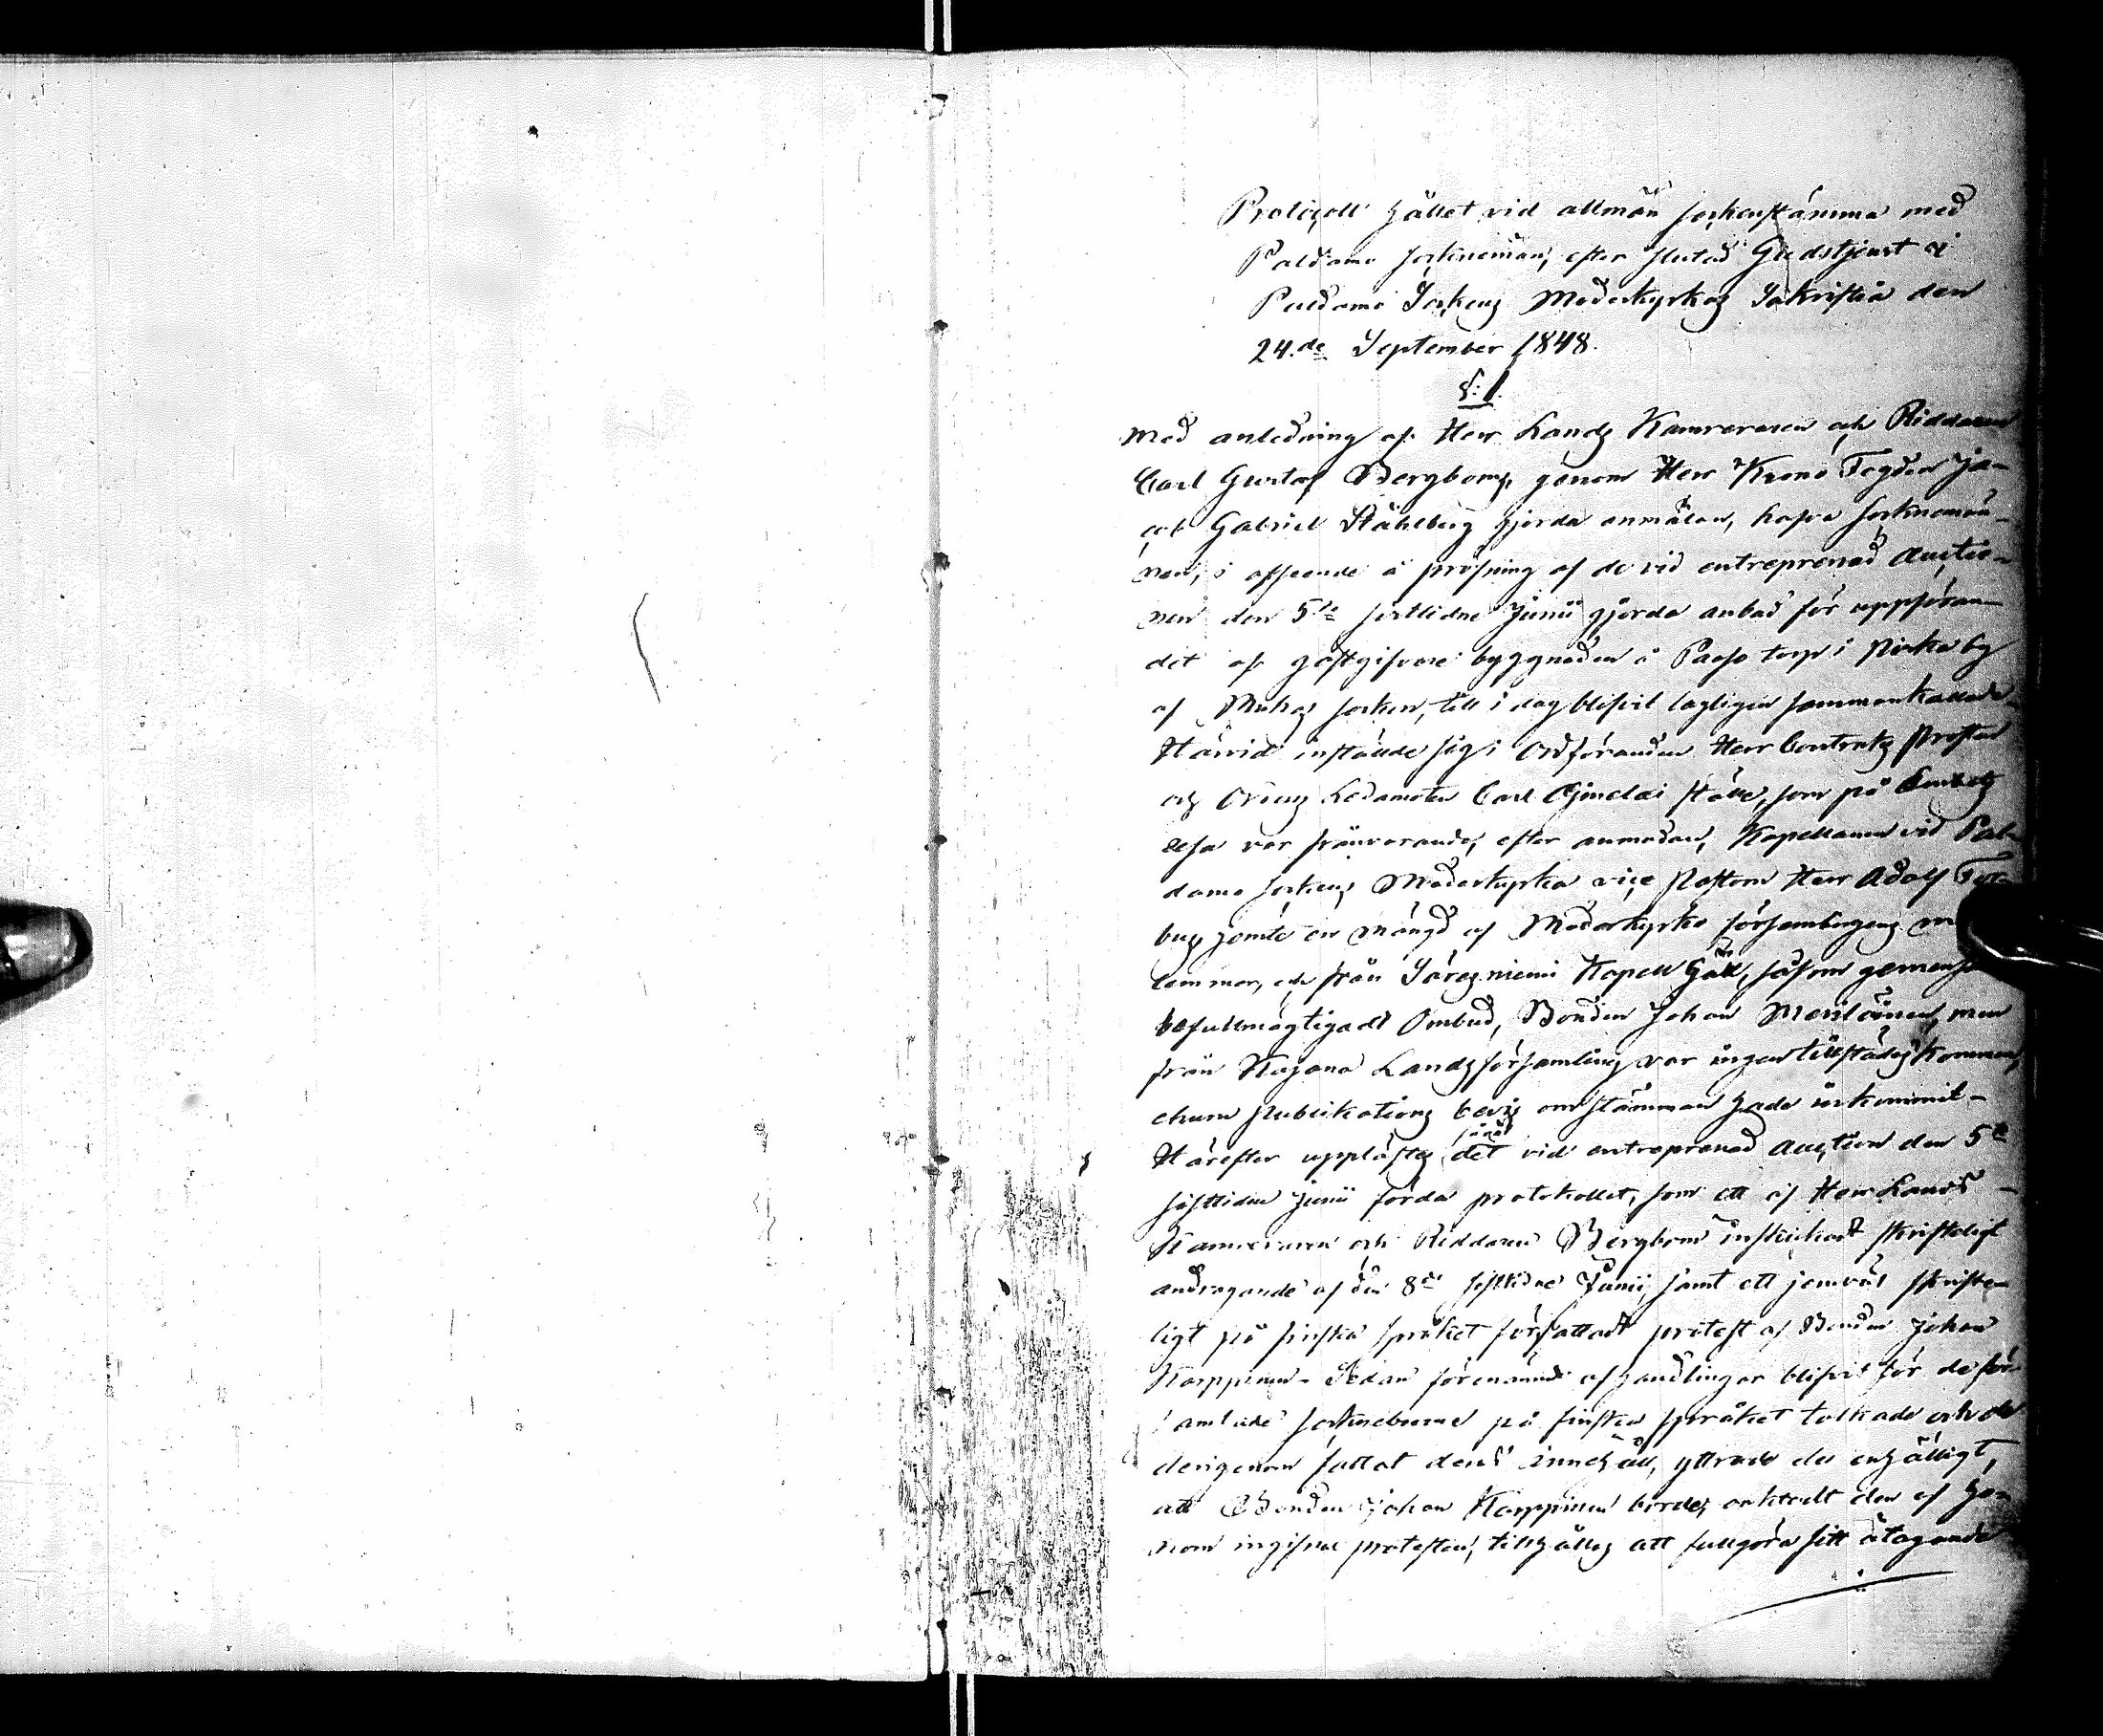 Protocoll hållet vid allmän sockenstämma med
Paldamo socknemän, efter slutad Gudstjenst i
Paldamo Sockens Moderkyrkas Sakristia den
24.de September 1848.
§: 1.
Med anledning af Herr Lands Kamreraren och Riddaren
Carl Gustaf Bergboms, genom Herr Krono Fogden Ja-
cob Gabriel Ståhlberg gjorda anmälan, hafva socknemän-
nen, i afseende å pröfning af de vid entreprenad Auctio-
nen den 5te sistlidne Junii gjorda anbud för uppföran-
det af gästgifvare byggnaden å Paaso torp i by
af Muhos socken, till i dag blifvit lagligen sammankallade.
Härvid inställde sig i Ordföranden Herr Contrakts Prosten
och Ledamoten Carl ställe, som på
resa var frånvarande, efter anmodan, Kapellanen vid Pal-
damo sockens Moderkyrka vice Pastorn Herr Adolf
jemte en mängd af Moderkyrko församlingens
lemmar, och från Säresniemi Kapell Gäll, såsom
befullmägtigadt Ombud, Bonden Johan Meriläinen, men
från Kajana Landsförsamling var ingen tillstädes kommen,
ehuru publikations bevis om stämman hade inkommit -
Härefter upplästes såväl det vid entreprenad Auction den 5te
sistlidne Junii förda protokollet, som ett af Herr Lands-
Kamreraren och Riddaren Bergbom inskickadt skriftligt
andragande af den 8de sistlidne Junii, samt ett jemväl skrifte-
ligt på finska språket författadt protest af Bonden Johan
Karppinen - Sedan förenämnde afhandlingar blifvit för de för-
samlade sockneboerne på finska språket tolkade och de
derigenom fattat deras innehåll, yttrade de enhälligt,
att Bonden Johan Karppinen borde, oaktadt den af ho-
nom ingifne protesten, tillhållas att fullgöra sitt åtagande